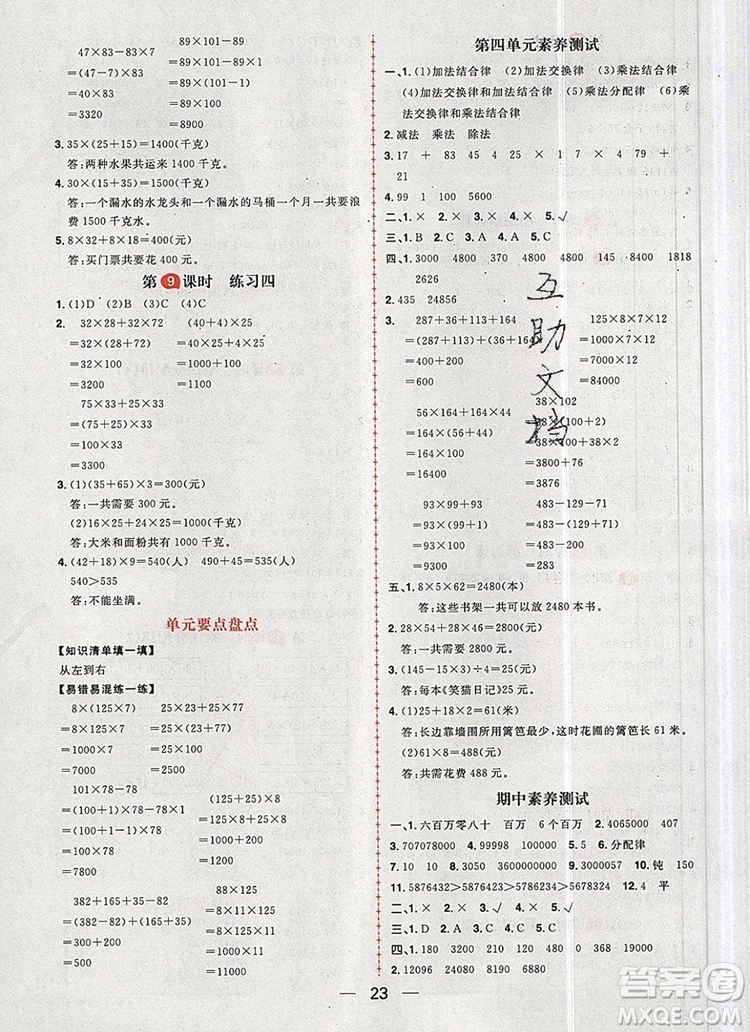 47×83−83×7
=(47−7)×83
=40×83
=3320
89×101−89
=89×(101−1)
=89×100
=8900
3. 35×(25+15)=1400(千克)
答:两种水果共运来 1400 千克。
4. 30×(15+35)=1500(千克)
答:一个漏水的水龙头和一个漏水的马桶一个月一共要浪
费 1500 千克水。
5. 8×32+8×18=400(元)
答:买门票共要花 400 元。
第9课时 练习四
1. (1)D (2)B (3)C (4)C
2. 32×28+32×72
=32×(28+72)
=32×100
=3200
(40+4)×25
=40×25+4×25
=1000+100
=1100
75×33+25×33
=(75+25)×33
=100×33
=3300
3. (1)(35+65)×3=300(元)
答:一共需要 300 元。
(2)16×25+24×25=1000(千克)
答:大米和面粉共有 1000 千克。
4. (42+18)×9=540(元) 490+45=535(人)
540>535
答:不能坐满。
单元要点盘点
【知识清单填一填】
从左到右
【易错易混练一练】
8×(125×7)
=8×125×7
=1000×7
=7000
25×23+25×17
=25×(23+17)
=25×40
=1000
101×78−78
=(100+1)×78−78
=100×78+78−78
=100×78
=7800
(125+25)×8
=125×8+25×8
=1000+200
=1200
382+165−82+135
=(382−82)+(165+135)
=300+300
=600
88×125
=8×11×125
=8×125×11
=1000×11
=11000
第四单元素养测试
一、1. (1)加法结合律 (2)加法交换律 (3)乘法结合律
(4)加法交换律和加法结合律 (5)乘法分配律 (6)乘
法交换律和乘法结合律
2. 减法 乘法 除法
3. 17 + 83 45 4 25 × 1 7 × 4 79 + 79 +
21
4. 99 1 100 5600
二、1. × 2. × 3. × 4. × 5. √
三、1. C 2. B 3. A 4. A 5. C
四、1. 0 360 1700 4800 4800 145 8400 1818
2626
2. 435 24856
3. 287+36+113+164
=(287+113)+(36+164)
=400+200
=600
125×8×7×12
=1000×7×12
=7000×12
=84000
56×164+44×164
=164×(56+44)
=164×100
=16400
38×102
=38×(100+2)
=38×100+38×2
=3800+76
=3876
93×99+93
=93×(99+1)
=93×100
=9300
483−129−71
=483−(129+71)
=483−200
=283
五、1. 8×5×62=2480(本)
答:这些书架一共可以放 2480 本书。
2. 28×54+28×46=2800(元)
答:一共需要 2800 元。
3. (145−15×3)÷5=20(元)
答:每本《笑猫日记》20 元。
4. (1)25+18×2=61(米)
答:长边靠墙围所用篱笆最少,这时花圃的篱笆长 61 米。
(2)61×8=488(元)
答:共需花费 488 元。
期中素养测试
一、1. 六百万零八十 百万 6 个百万 2. 4065000 407
3. 707078000 4. 99998 100000 5. < > = 6. 分配律
7. 10 10 8. 5360 3600000000 9. 3000057 10. 钝 150
11. 5876432>5876423>5786234>5678324 12. 4 平
二、1. × 2. × 3. √ 4. × 5. √
三、1. C 2. D 3. A 4. B 5. C
四、1. 1400 180 3200 120 480 0 368 19000
2. 12096 24080 9120 30600 9322 61845
23
互助文档
答案圈
MXQE.COM